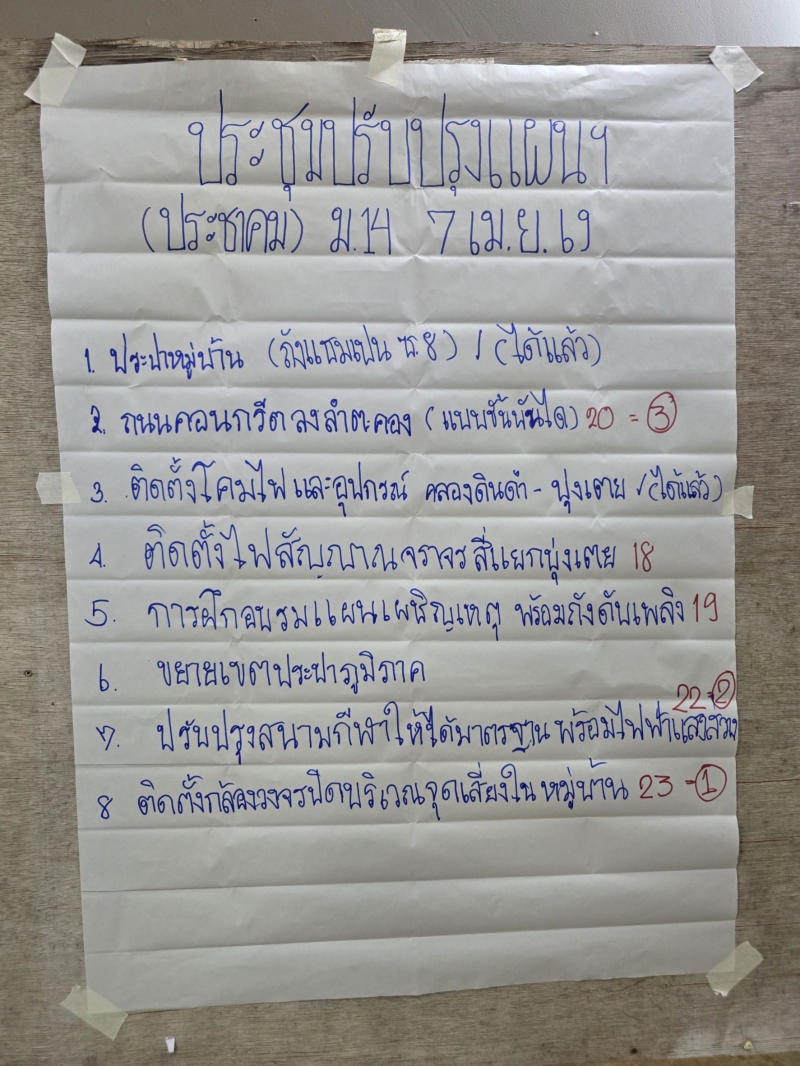 ประชุมปรับปรุงแผนฯ
(ประชาคม) ม.14 7 เม.ย. 69
1. ประปาหมู่บ้าน (ถังแชมเปน ซ.8) ✓ (ได้แล้ว)
2. ถนนคอนกรีตลงลำคลอง (แบบขั้นบันได) 20 = ③
3. ติดตั้งโคมไฟและอุปกรณ์ คลองดินดำ - พุ่งเตย ✓ (ได้แล้ว)
4. ติดตั้งไฟสัญญาณจราจรสี่แยกพุ่งเตย 18
5. การฝึกอบรมแผนเผชิญเหตุ พร้อมถังดับเพลิง 19
6. ขยายเขตประปาภูมิภาค
22 = ②
7. ปรับปรุงสนามกีฬาให้ได้มาตรฐาน พร้อมไฟฟ้าแสงสว่าง
8 ติดตั้งกล้องวงจรปิดบริเวณจุดเสี่ยงในหมู่บ้าน 23 = ①